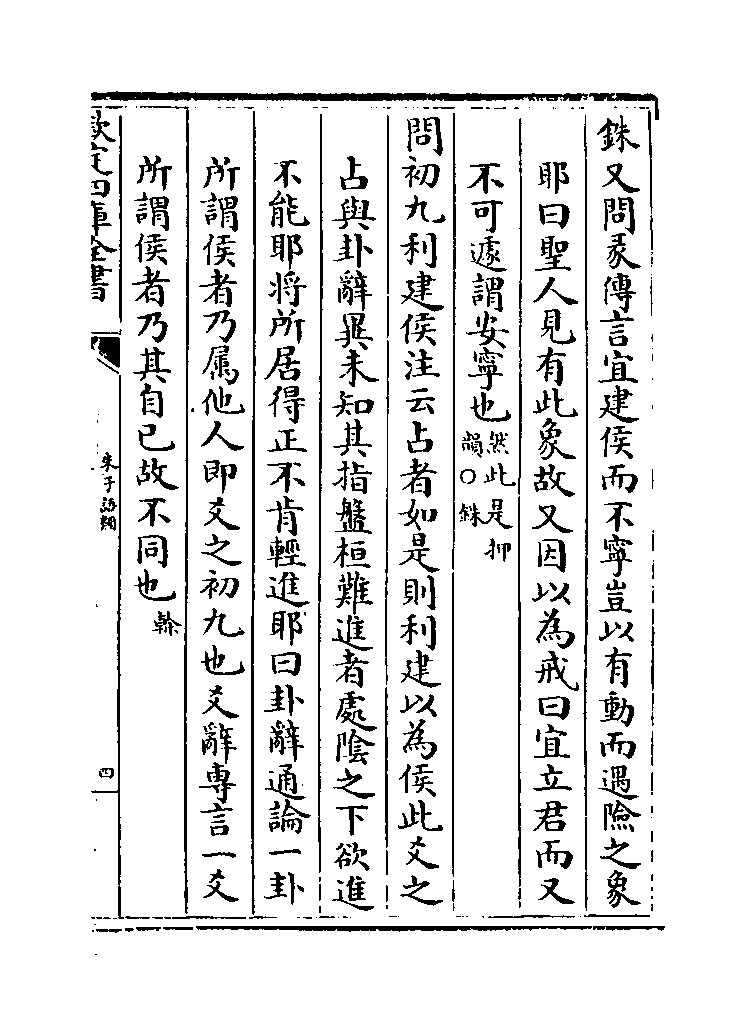 銖又問彖傳言宜建侯而不寧豈以有動而遇險之象
耶曰聖人見有此象故又因以為戒曰宜立君而又
不可遽謂安寧也然此是押韻○銖
問初九利建侯注云占者如是則利建以為侯此爻之
占與卦辭異未知其指盤桓難進者處隂之下欲進
不能耶將所居得正不肯輕進耶曰卦辭通論一卦
所謂侯者乃属他人即爻之初九也爻辭專言一爻
所謂侯者乃其自己故不同也榦
欽定四庫全書
朱子語類
四